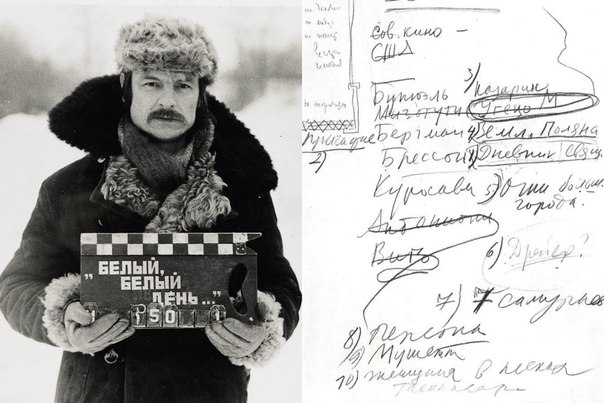 "БЕЛЫЙ,
БЕЛЫЙ
ДЕНЬ..."
1 150 1
сов. кино –
США
Бунюэль 3) Назарин
Мизогути Угецу М
Бергман 4) Земл. Поляна
2) Брессон Дневник свящ.
Куросава 5) Огни больш.
города.
Антониони
Виго 6) Дрейер?
7) 7 самураев
8) Персона
9) Мушетт
10) Женщина в песках